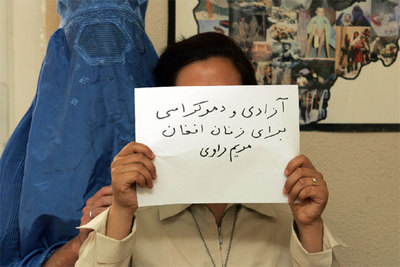 آزادی و دموکراسی
برای زنان افغان
مریم راوی